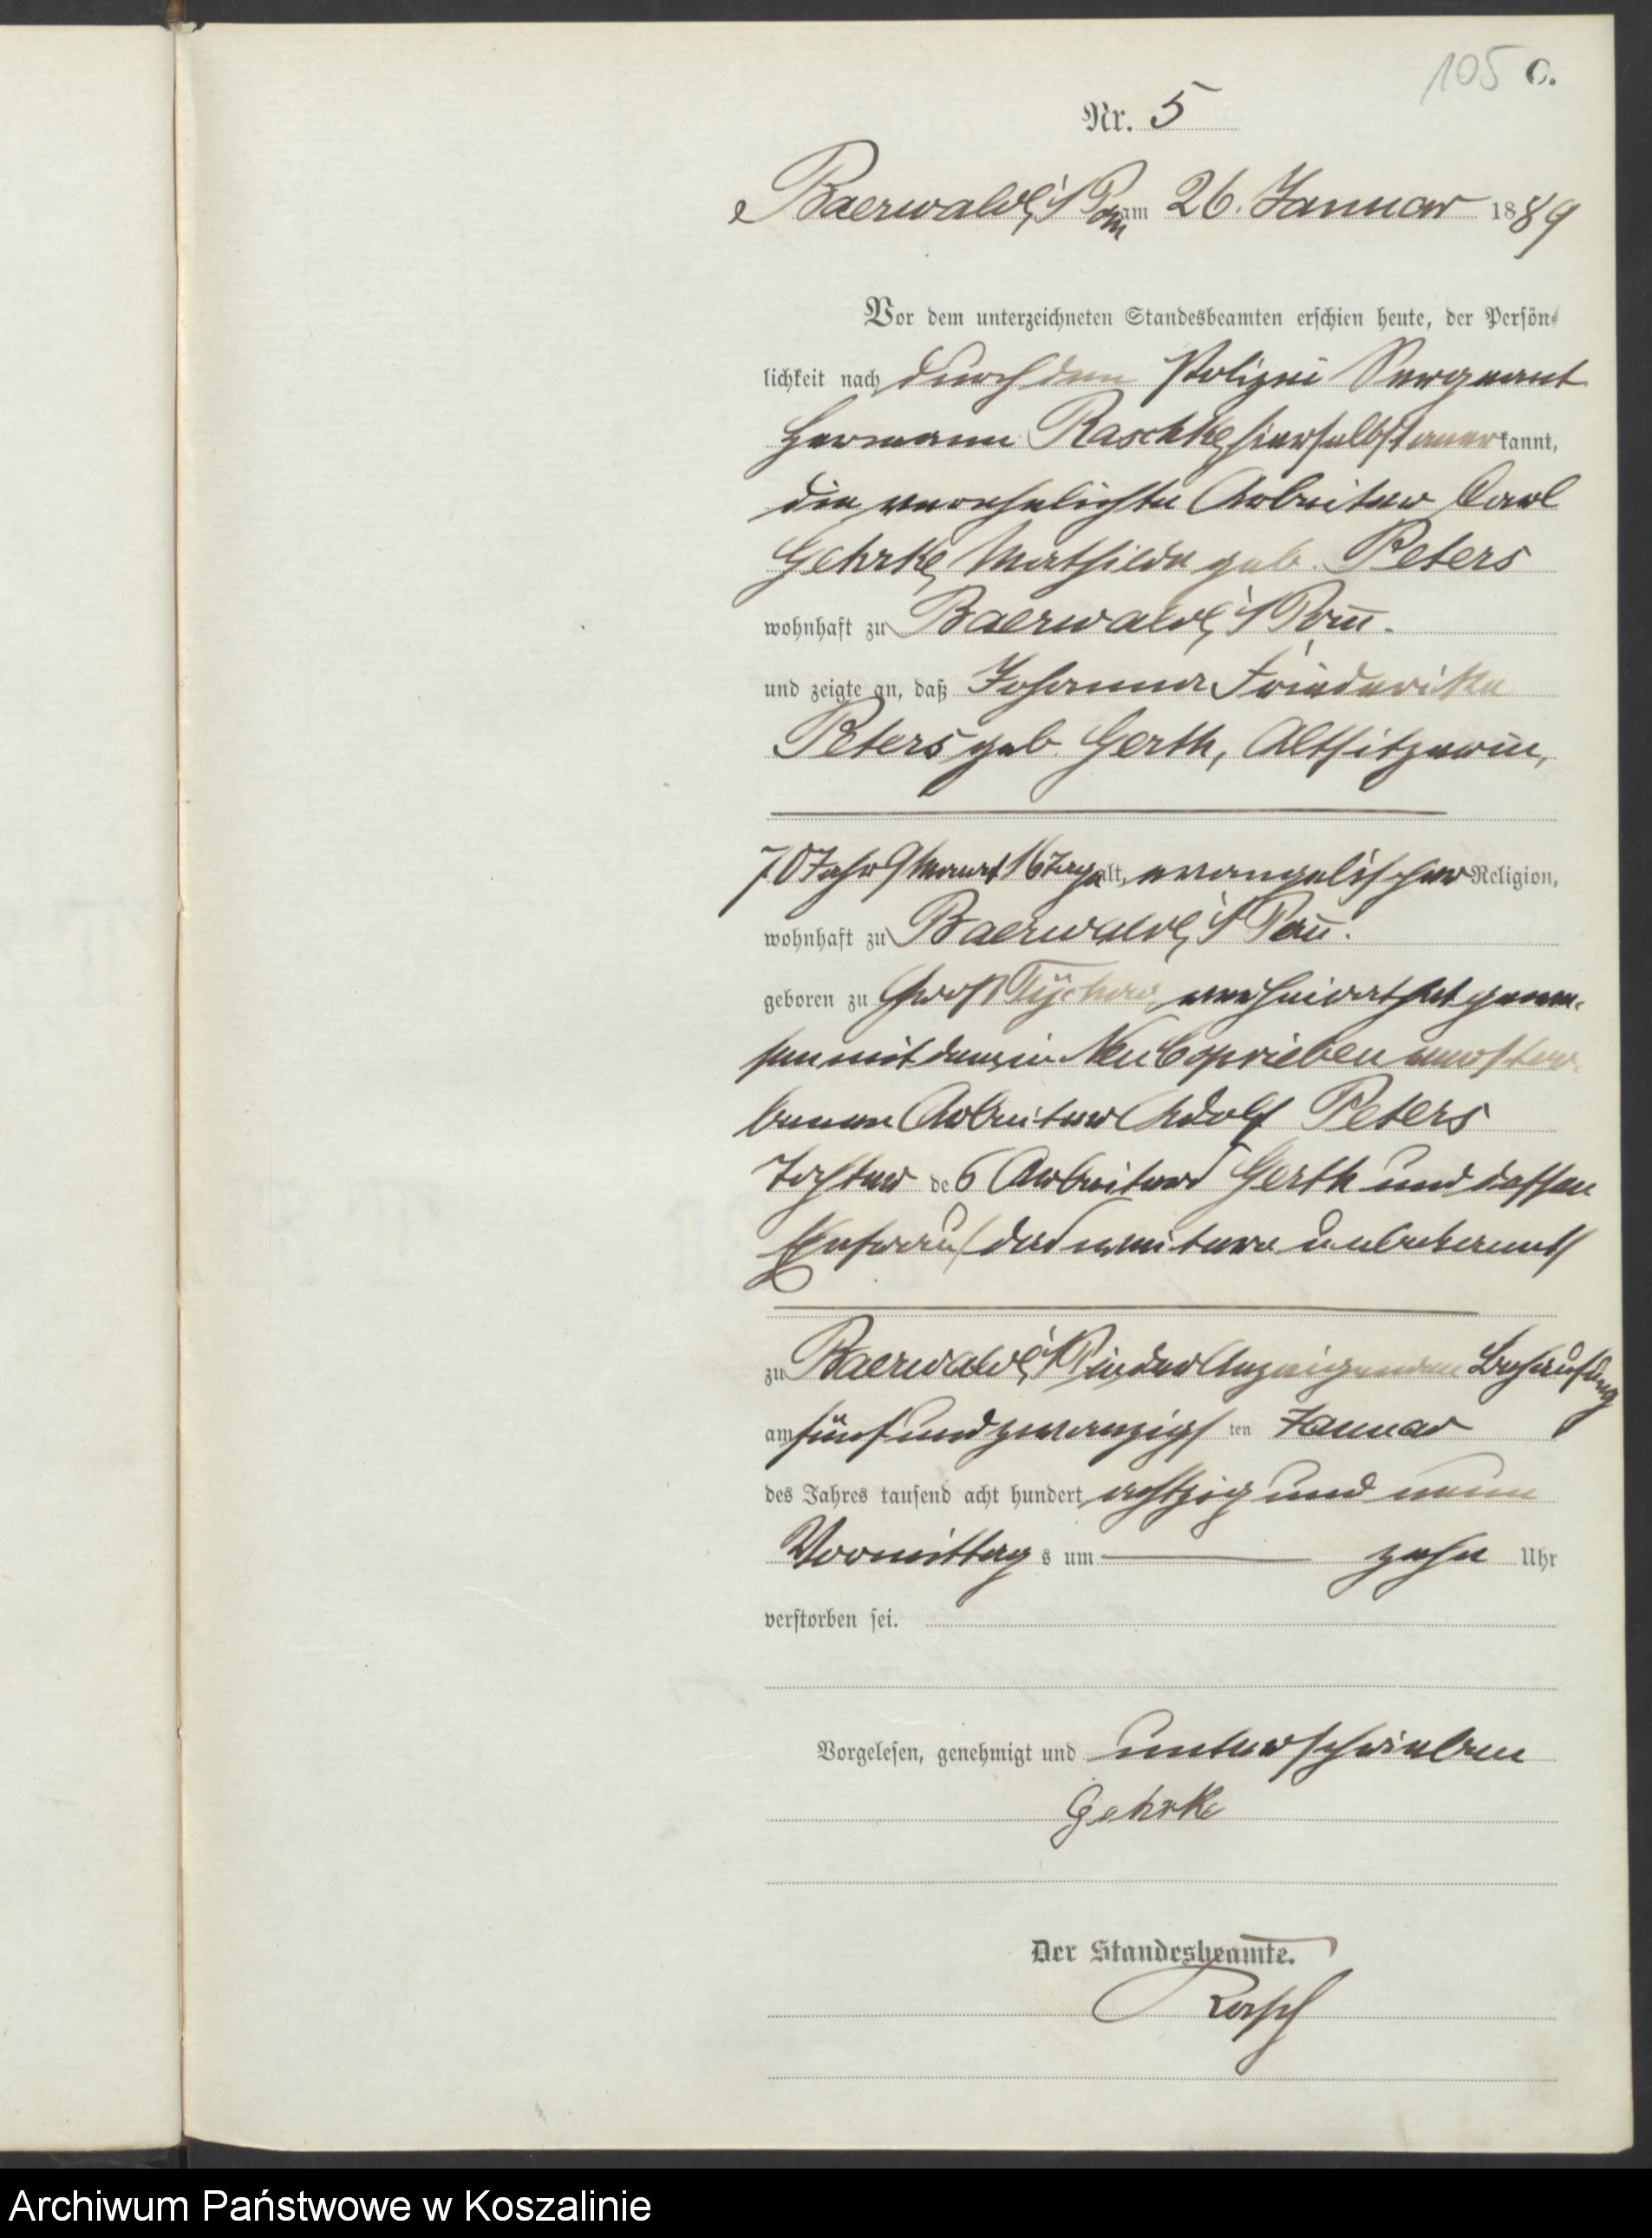 105 C.
Nr. 5
Baerwald i/Pom am 26. Januar 1889
Vor dem unterzeichneten Standesbeamten erschien heute, der Persön-
lichkeit nach durch den Polizei Sergeant
Hermann Raschke hierselbst anerkannt,
die verehelichte Arbeiter Carl
Gehrke, Mathilde geb. Peters
wohnhaft zu Baerwald i/Pom.
und zeigte an, daß Johanna Friederike
Peters geb. Gerth, Altsitzerin,
70 Jahr 9 Monat 16 Tage alt, evangelischer Religion,
wohnhaft zu Baerwald i/Pom.
geboren zu Groß Tychow, verheirathet gewe-
sen mit dem in Neu Coprieben verstor-
benen Arbeiter Adolf Peters
Tochter des Arbeiters Gerth und dessen
Ehefrau, das weitere unbekannt
zu Baerwald i/P in der Anzeigenden Behausung
am fünf und zwanzigsten Januar
des Jahres tausend acht hundert achtzig und neun
Vormittags um zehn Uhr
verstorben sei.
Vorgelesen, genehmigt und unterschrieben
Gehrke
Der Standesbeamte.
Archiwum Państwowe w Koszalinie